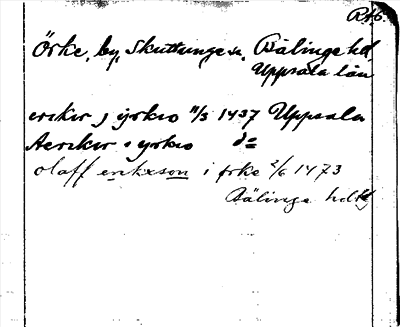 RA6.
Örke, by, Skuttunge sn, Bälinge hd,
Uppsala län
ericer j yrkio 11/3 1437 Uppsala
Aericer i yrkio do
olaff erikxson i ørke 2/6 1473
Bälinge hdtg